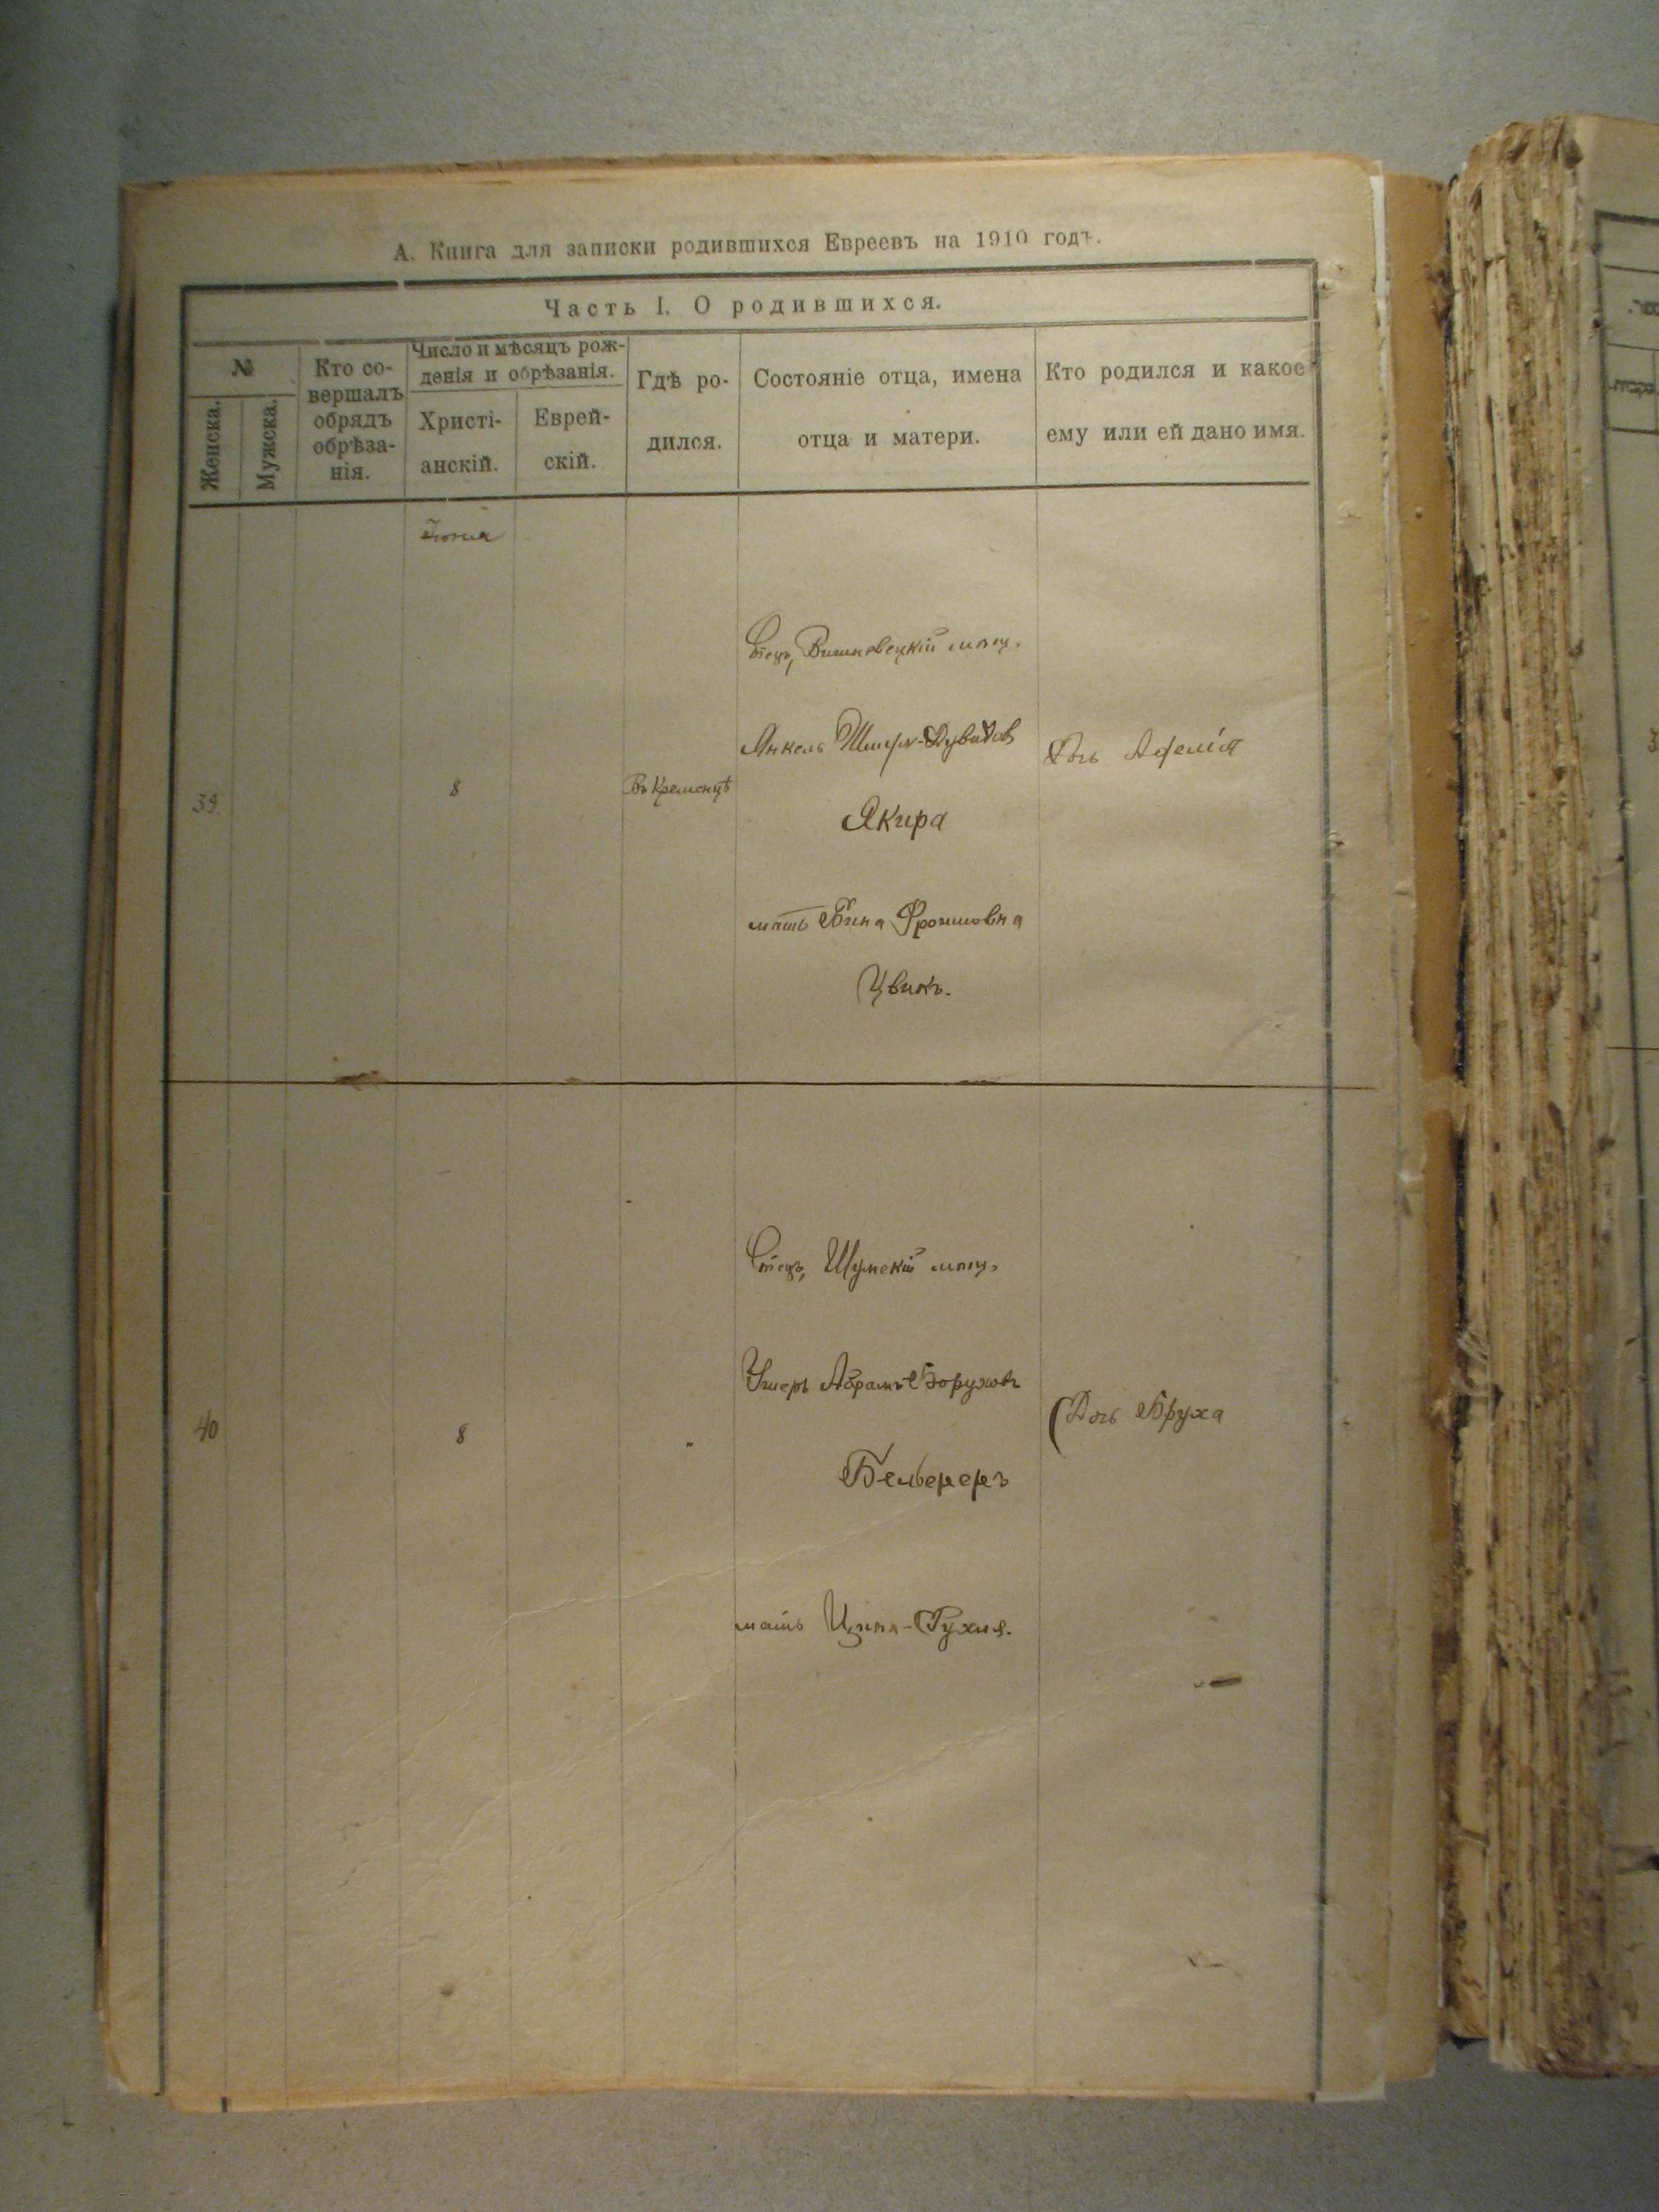 А. Книга для записки родившихся Евреевъ на 1910 годъ.
Часть I. О родившихся.
№
Женска.
Мужска.
Кто со-
вершалъ
обрядъ
обрѣза-
нія.
Число и мѣсяцъ рож-
денія и обрѣзанія.
Христі-
анскій.
Еврей-
скій.
Гдѣ ро-
дился.
Состояніе отца, имена
отца и матери.
Кто родился и какое
ему или ей дано имя.
39.
8
Въ Кременцѣ
Отецъ, Вишневецкій мѣщ.
Янкель
Якира
мать Бина Фроимовна
Цвикъ.
Дочь
40
8
"
Отецъ, Шумскій мѣщ.
Ушеръ Абрамъ Боруховъ
мать Ципа-Рухля.
Дочь Бруха